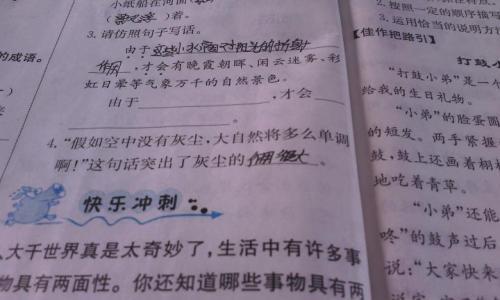 小纸船在河面
着。
的成语。
3. 请仿照句子写话。
由于这些小水滴对阳光的折射
作用,才会有晚霞朝晖、闲云迷雾、彩
虹日晕等气象万千的自然景色。
由于 ,才会
。
4. “假如空中没有灰尘,大自然将多么单调
啊!”这句话突出了灰尘的作用很大。
快乐冲刺
大千世界真是太奇妙了,生活中有许多事
物具有两面性。你还知道哪些事物具有两
2. 按照一定的顺序描写
3. 运用恰当的说明方
【佳作把路引】
打鼓小
“打鼓小弟”是一
给我的生日礼物。
“小弟”的脸蛋圆
的短发。两手紧握
鼓,鼓上还画着栩栩
地吃着青草。
“小弟”还能
咚”的鼓声过后
说:“大家快来